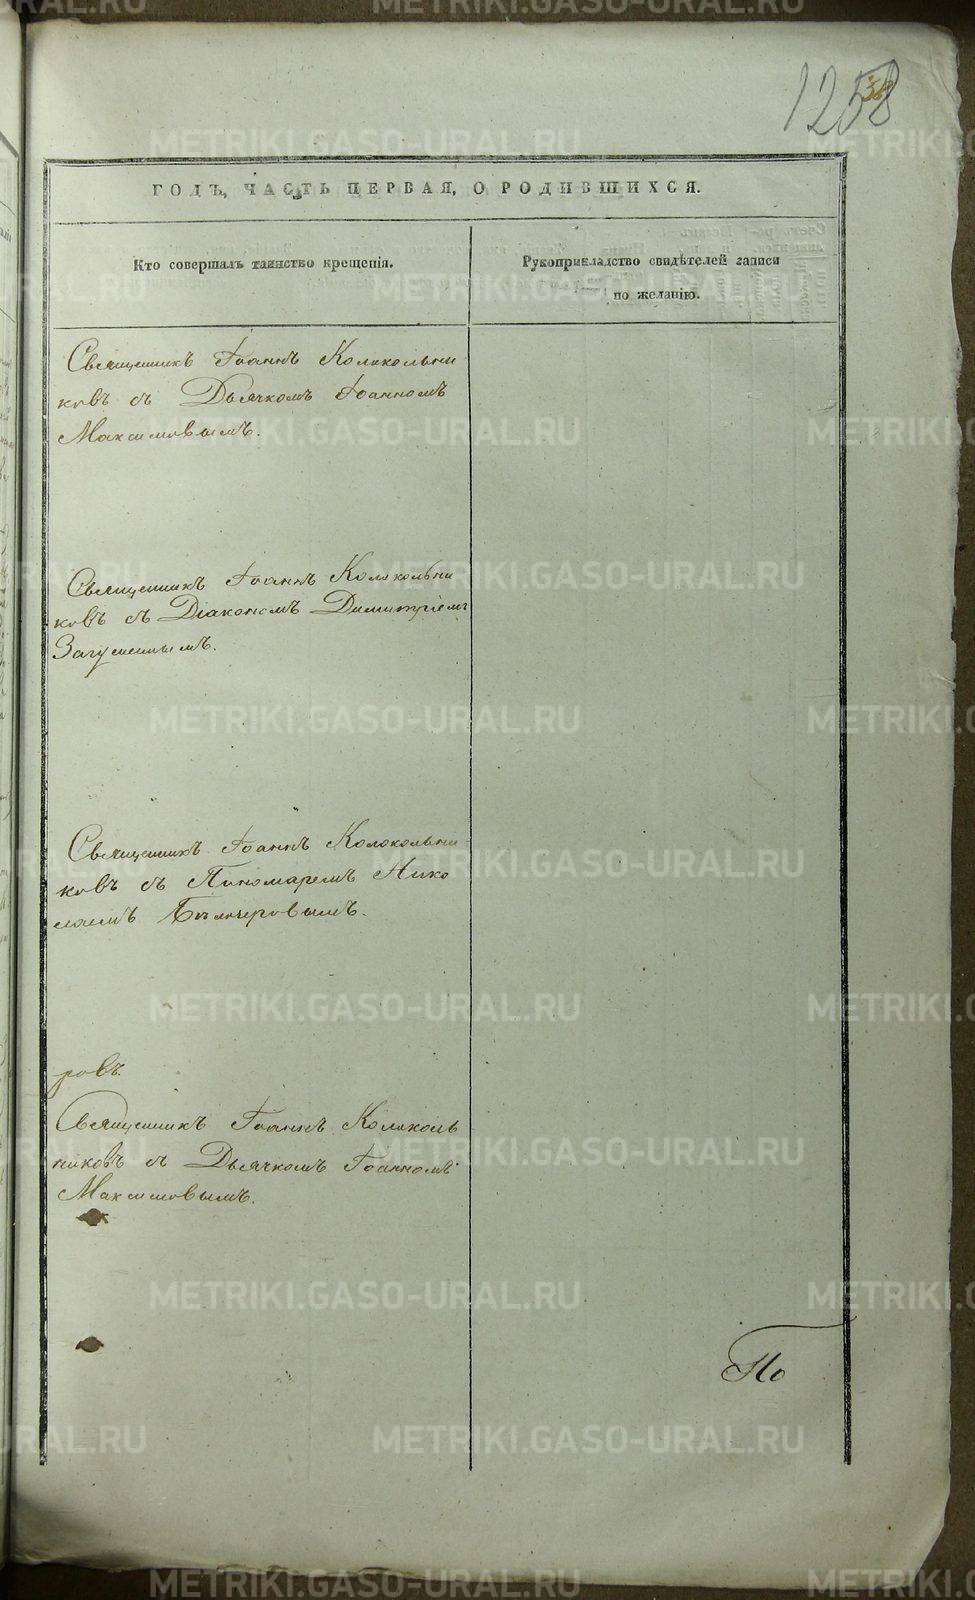 1258
ГОДЪ, ЧАСТЬ ПЕРВАЯ, О РОДИВШИХСЯ.
Кто совершалъ таинство крещенія.
Рукоприкладство свидѣтелей записи
по желанію.
Священникъ Іоаннъ Колокольни
ковъ съ Дьячкомъ Іоанномъ
Максимовымъ.
Священникъ Іоаннъ Колокольни
ковъ съ Діакономъ Димитріемъ
Загуменнымъ.
Священникъ Іоаннъ Колокольни
ковъ съ Пономаремъ Нико
лаемъ
ровъ.
Священникъ Іоаннъ Колоколь
никовъ съ Дьячкомъ Іоанномъ
Максимовымъ.
По
METRIKI.GASO-URAL.RU